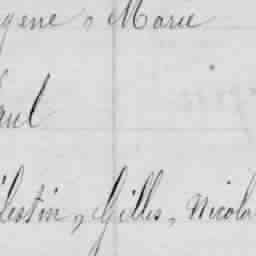 gène, Marie
aul
lestin, Gilles, Nicola